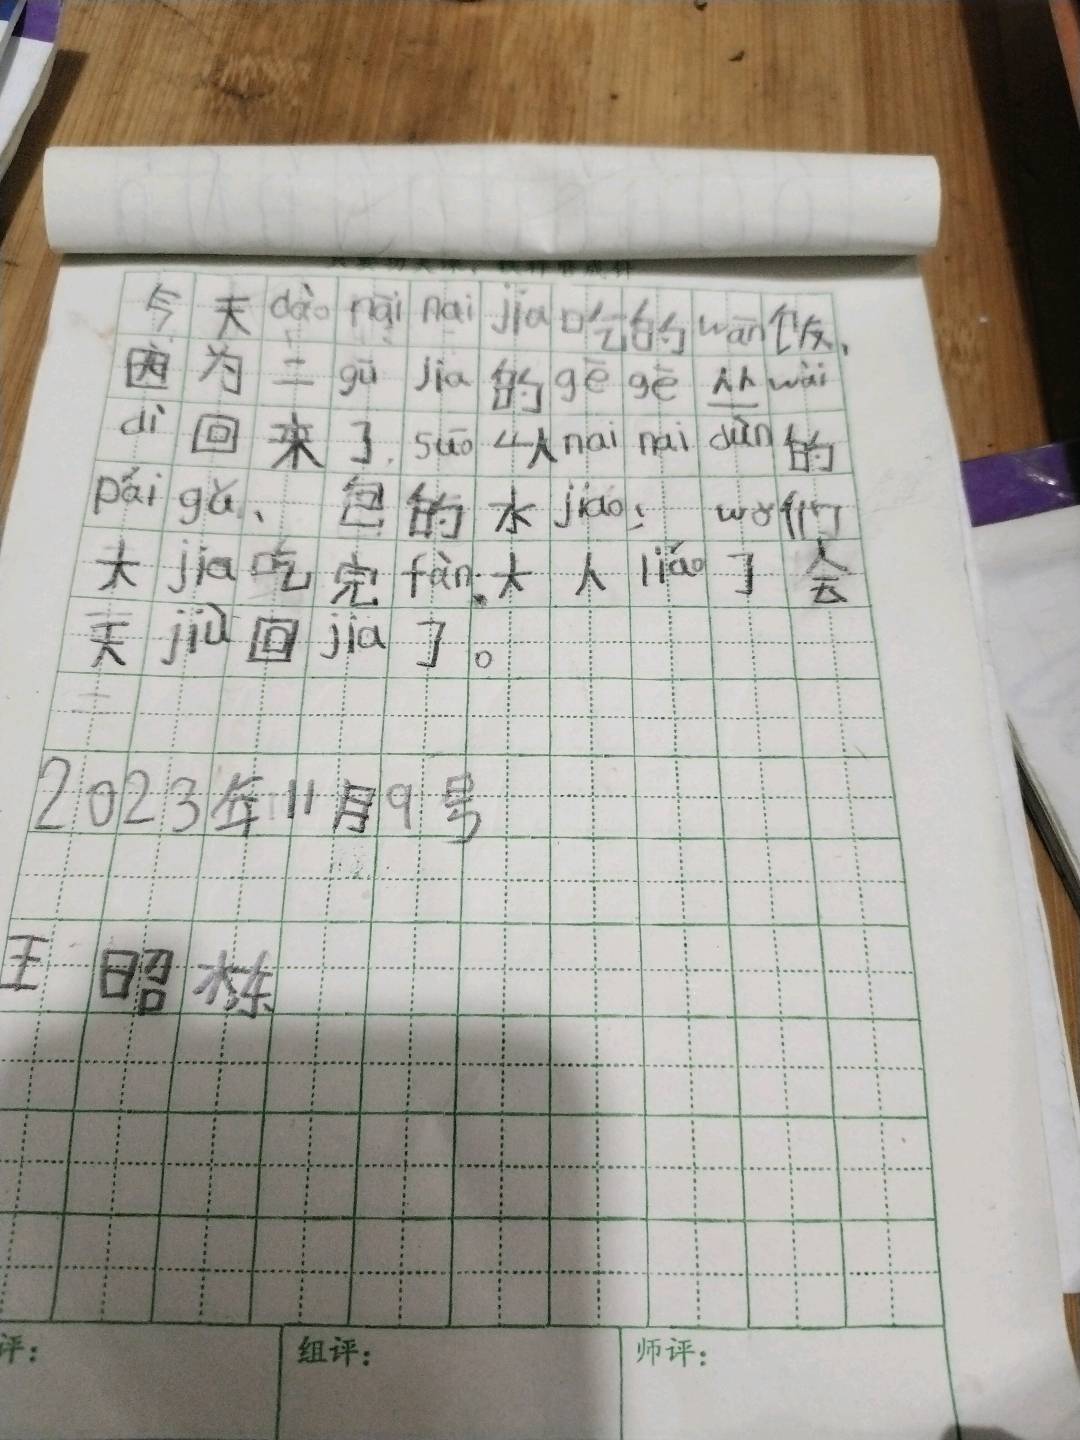 今天dào nǎi nai jia吃的wǎn饭、
因为二gū jia的gē gē 从wài
dì回来了.suǒ 以nai nai dùn的
pái gǔ、包的水jiǎo; wǒ们
大jia吃完fàn.大人liáo了会
天jiù回jia了。
二
2023年11月9号
王昭栋
评:
组评:
师评: